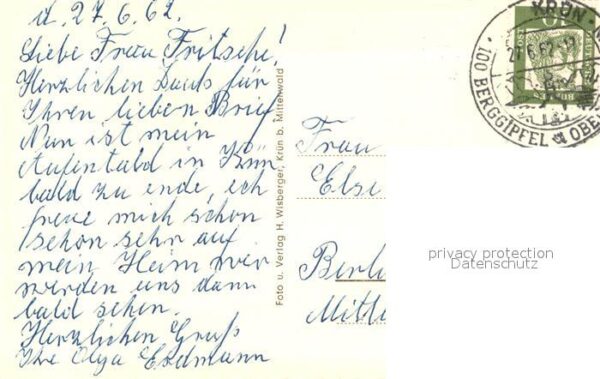 d. 27.6.62.
Liebe Frau Fritsche!
Herzlichen Dank für
Ihren lieben Brief
Nun ist mein
Aufenthald in Krün
bald zu ende, ich
freue mich schon
schon sehr auf
mein Heim wir
werden uns dann
bald sehen.
Herzlichen Gruß
Ihre Olga Erdmann
Foto u. Verlag H. Wisberger, Krün b. Mittenwald
Frau
Else
Berlin
Mitte
KRÜN
27.6.62
100 BERGGIPFEL
privacy protection
Datenschutz